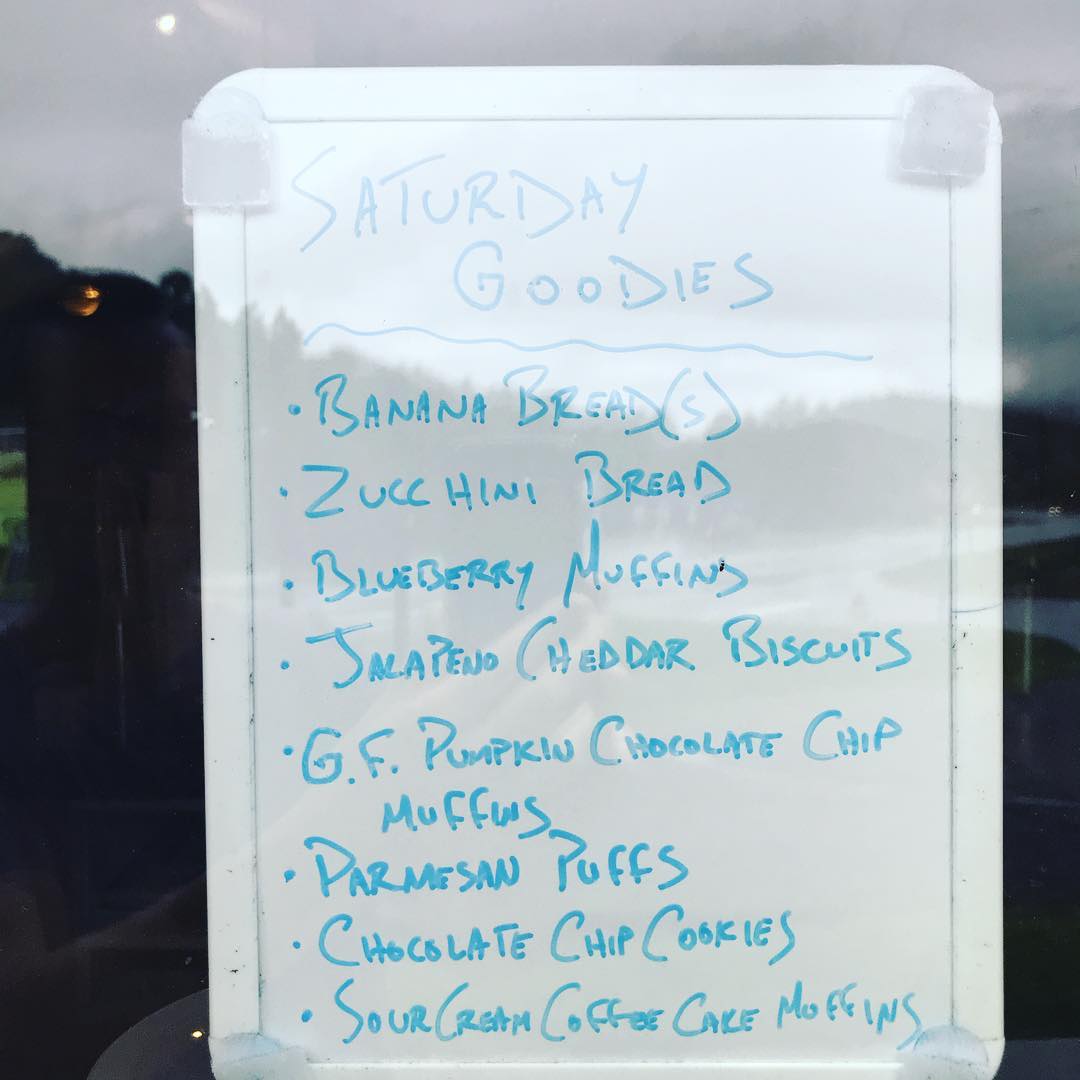 SATURDAY
GOODIES
• BANANA BREAD(S)
• ZUCCHINI BREAD
• BLUEBERRY MUFFINS
• JALAPENO CHEDDAR BISCUITS
• G.F. PUMPKIN CHOCOLATE CHIP
MUFFINS
• PARMESAN PUFFS
• CHOCOLATE CHIP COOKIES
• SOUR CREAM COFFEE CAKE MUFFINS